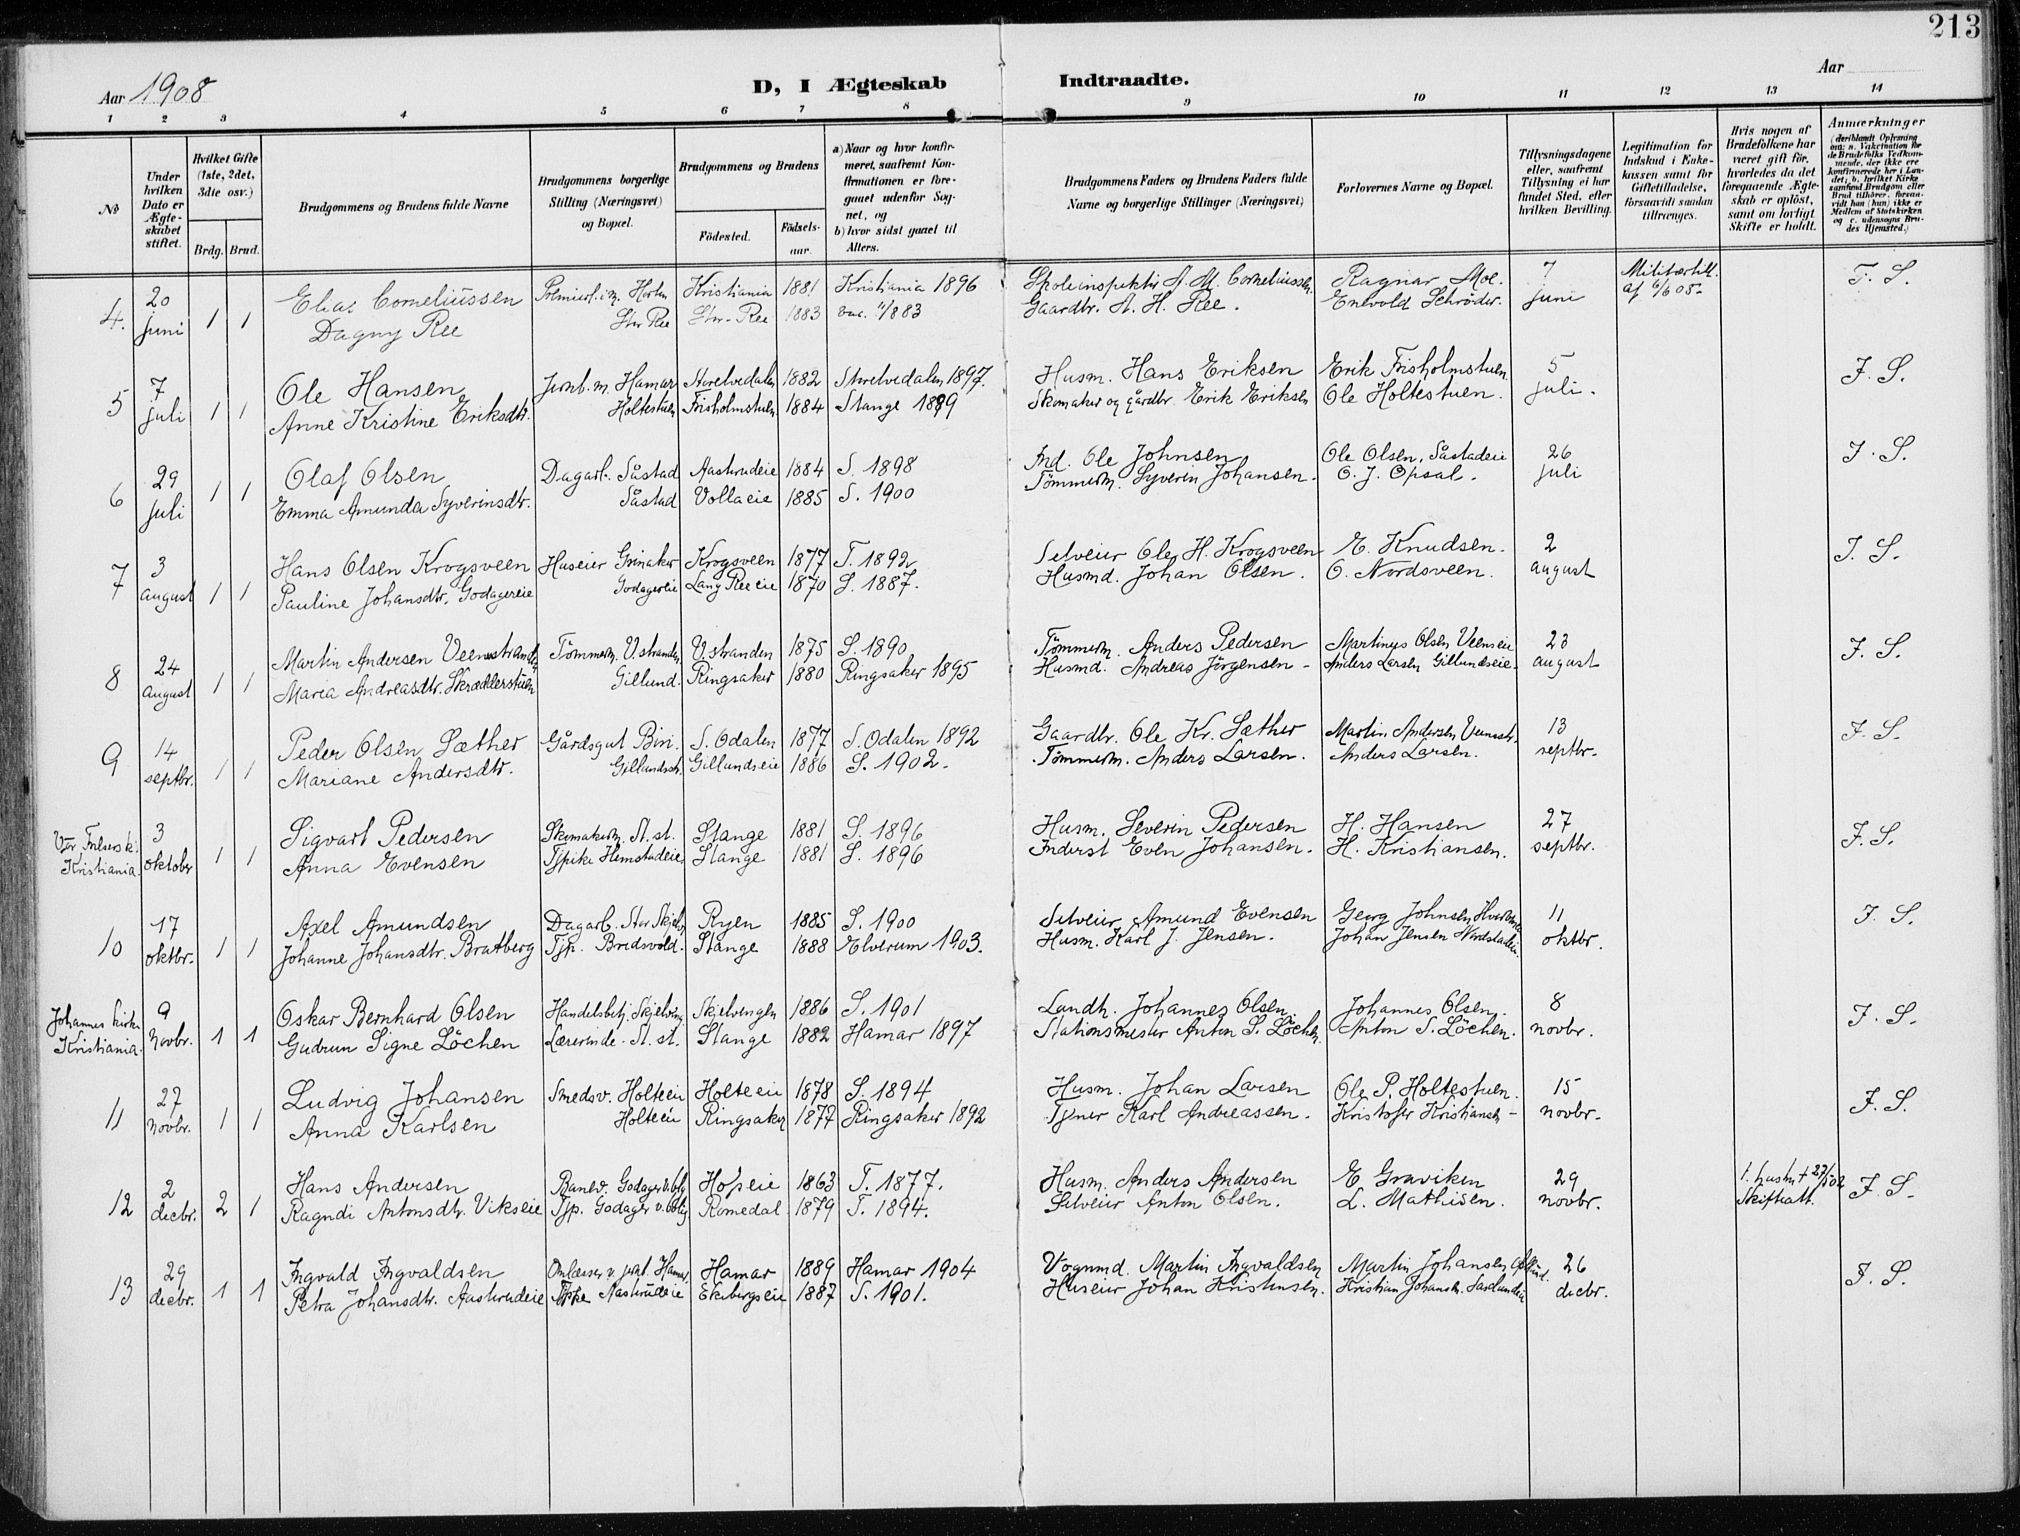 213
Aar 1908
D, I Ægteskab Indtraadte.
Aar
1 2 3 4 5 6 7 8 9 10 11 12 13 14
No
Under hvilken Dato er Ægteskabet stiftet.
Hvilket Gifte (1ste, 2det, 3die osv.)
Brdg. Brud.
Brudgommens og Brudens fulde Navne
Brudgommens borgerlige Stilling (Næringsvei) og Bopæl.
Brudgommens og Brudens
Födested. Födselsaar.
a) Naar og hvor konfirmeret, saafremt Konfirmationen er foregaaet udenfor Sognet, og
b) hvor sidst gaaet til Alters.
Brudgommens Faders og Brudens Faders fulde Navne og borgerlige Stillinger (Næringsvei)
Forlovernes Navne og Bopæl.
Tillysningsdagene eller, saafremt Tillysning ei har fundet Sted, efter hvilken Bevilling.
Legitimation for Indskud i Enkekassen samt for Giftetilladelse, forsaavidt saadan tiltrænges.
Hvis nogen af Brudefolkene har været gift før, hvorledes da det foregaaende Ægteskab er oplöst, samt om lovligt Skifte er holdt.
Anmærkninger
(deriblandt Oplysning om: a. Vakcination for de Brudefolks Vedkommende, der ikke ere konfirmerede her i Landet; b. hvilket Kirkesamfund Brudgom eller Brud tilhörer, forsaavidt han (hun) ikke er Medlem af Statskirken og c. udensogns Brudes Hjemsted.)
4. 20 juni 1 1 Elias Corneliussen Premierl. i m. Horten Kristiania 1881 Kristiania 1896 Skoleinspektör A. M. Corneliussen. Ragnar Moe. 7 juni Militærtill. af 6/6 05- F. S.
Dagny Ree Str Ree Str. Ree 1883 vac. 11/883 Gaardbr. A. H. Ree. Enevold Schröder.
5 7 juli 1 1 Ole Hansen Jernb. m. Hamar Storelvedalen 1882 Storelvedalen 1897. Husm. Hans Eriksen Erik Frisholmstuen. 5 juli. F. S.
Anne Kristine Eriksdtr. Holtestuen Frisholmstuen 1884 Stange 1899 Skomaker og gårdbr. Erik Eriksen Ole Holtestuen.
6 29 juli 1 1 Olaf Olsen Dagarb. Såstad Aastrudeie 1884 S. 1898 Ind. Ole Johnsen Ole Olsen, Såstadeie 26 juli F. S.
Emma Amunda Syverinsdtr. Såstad Vollaeie 1885 S. 1900 Tömmerm. Syverin Johansen. O. J. Opsal.
7 3 august 1 1 Hans Olsen Krogsveen Huseier Grinaker Krogsveen 1877 T. 1892 Selveier Ole H. Krogsveen E. Knudsen. 2 august F. S.
Pauline Johansdtr. Godagereie Godagereie Lang Ree eie 1870 S. 1887. Husmd. Johan Olsen. O. Nordsveen.
8 24 august 1 1 Martin Andersen Veenstranden Tömmerm. V.stranden V.stranden 1875 S. 1890 Tömmerm. Anders Pedersen Martinus Olsen Veenseie 23 august F. S.
Maria Andreasdtr. Skrædderstuen Gillund. Ringsaker 1880 Ringsaker 1895 Husmd. Andreas Jörgensen - Anders Larsen Gillundseie.
9 14 septbr. 1 1 Peder Olsen Sæther Gårdsgut Biri. S. Odalen 1877 S. Odalen 1892 Gaardbr. Ole Kr. Sæther Martin Andersen Veenstr. 13 septbr. F. S.
Mariane Andersdtr. Gillundseie 1886 S. 1902. Tömmerm. Anders Larsen. Anders Larsen.
Vor Frelsers k. Kristiania 3 oktobr 1 1 Sigvart Pedersen Skomakerm. St. st. Stange 1881 S. 1896 Husm. Severin Pedersen H. Hansen 27 septbr. F. S.
Anna Evensen Tjpike Hemstadeie Stange 1881 S. 1896 Inderst Even Johansen. H. Kristiansen.
10 17 oktbr. 1 1 Axel Amundsen Dagarb. Ryen 1885 S. 1900 Selveier Amund Evensen Georg Johnsen 11 oktbr. F. S.
Johanne Johansdtr. Bratberg Tjp. Bredsvold. Stange 1888 Elverum 1903. Husm. Karl J. Jensen. Johan Jensen Nordstadeie.
Johannes kirke Kristiania. 9 Novbr. 1 1 Oskar Bernhard Olsen Handelsbetj. Skjelving Skjelvengen 1886 S. 1901 Landh. Johannes Olsen Johannes Olsen. 8 novbr. F. S.
Gudrun Signe Löchen Lærerinde. St. st. Stange 1882 Hamar 1897 Stationsmester Anton S. Löchen. Anton S. Löchen.
11 27 Novbr. 1 1 Ludvig Johansen Smedsv. Holteeie Holteeie 1878 S. 1894 Husm. Johan Larsen Ole P. Holtestuen. 15 novbr. F. S.
Anna Karlsen Holteeie Ringsaker 1877 Ringsaker 1892 Tjener Karl Andreassen. Kristofer Kristiansen -
12 2 decbr. 2 1 Hans Andersen Banev. Hopeie 1863 T. 1877. Husm. Anders Andersen E. Graviken 29 novbr. 1. hustr † 27/5 02 Skifteatt. F. S.
Ragndi Antonsdtr. Vikseie Tjp. Romedal 1879 T. 1894. Selveier Anton Olsen. L. Mathisen.
13 29 decbr. 1 1 Ingvald Ingvaldsen Hamar 1889 Hamar 1904 Vognmd. Martin Ingvaldsen Martin Johansen 26 decbr. F. S.
Petra Johansdtr. Aastrudeie Tjpke Aastrudeie Ekebergseie 1887 S. 1901. Huseier Johan Kristensen. Kristian Johansen.